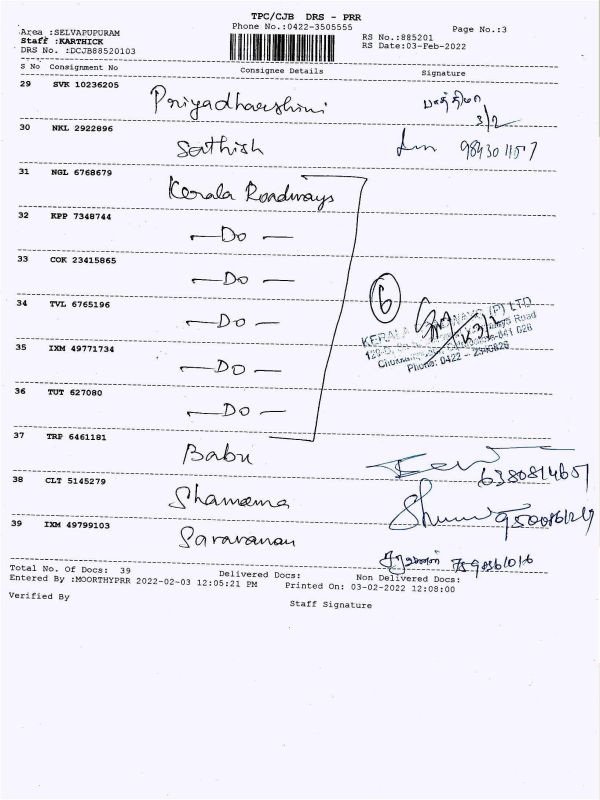 TPC/CJB DRS - PRR
Area :SELVAPUPURAM
Phone No.:0422-3505555
Page No.:3
Staff :KARTHICK
RS No.:885201
DRS No. :DCJB88520103
RS Date:03-Feb-2022
S No Consignment No Consignee Details Signature
29 SVK 10236205 Priyadharshini
3/2
30 NKL 2922896 Sathish
31 NGL 6768679 Kerala Roadways
32 KPP 7348744 —Do—
33 COK 23415865 —Do—
34 TVL 6765196 —Do—
6
KERALA ROADWAYS (P) LTD
35 IXM 49771734 —Do—
Phone: 0422 -
36 TUT 627080 —Do—
37 TRP 6461181 Babu
6380814651
38 CLT 5145279 Shamama
39 IXM 49799103 Saravanan
சரவணன்
Total No. Of Docs: 39 Delivered Docs: Non Delivered Docs:
Entered By :MOORTHYPRR 2022-02-03 12:05:21 PM Printed On: 03-02-2022 12:08:00
Verified By Staff Signature